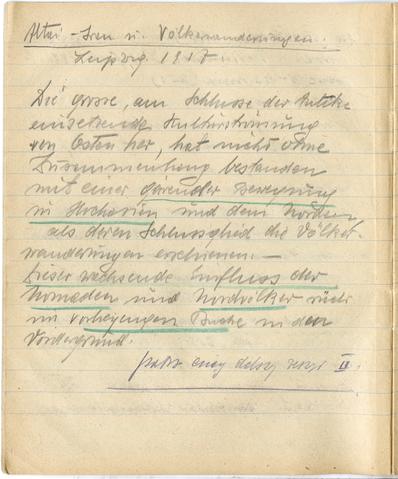 Altai-Iran u. Völkerwanderungen.
Leipzig. 1917
Die grosse, am Schlusse der Antike
einsetzende Kulturströmung
von Osten her, hat nicht ohne
Zusammenhang bestanden
mit einer Bewegung
in Hochasien und dem Norden
als deren Schlussglied die Völker-
wanderungen erschienen. —
Dieser wachsende Einfluss der
Nomaden und Nordvölker rückt
im vorliegenden Buche in den
Vordergrund.
II.